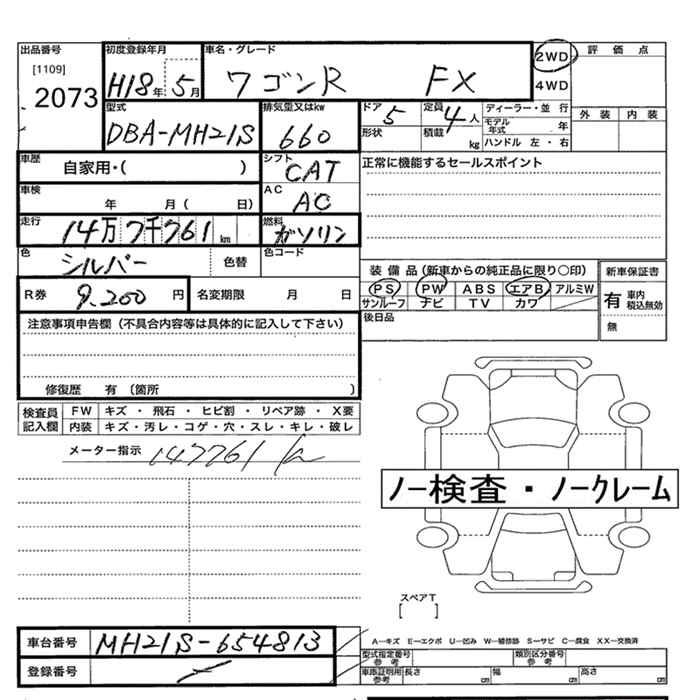 出品番号 初度登録年月 車名・グレード 2WD 評価点
[1109] 2073 H18年 5月 ワゴンR FX 4WD
外装 内装
型式 排気量又はkw ドア 5 定員 4人 ディーラー・並行
DBA-MH21S 660 形状 積載 kg モデル年式 年
ハンドル 左・右
車歴 自家用・( ) シフト CAT 正常に機能するセールスポイント
車検 年 月( 日) AC AC
走行 14万7千761km 燃料 ガソリン
色 シルバー 色替 色コード
装備品(新車からの純正品に限り〇印) 新車保証書
R券 9.200円 名変期限 月 日
PS PW ABS エアB アルミW 有 車内税込無効
サンルーフ ナビ TV カワ 無
後日品
注意事項申告欄(不具合内容等は具体的に記入して下さい)
修復歴 有〔箇所 )
検査員記入欄 FW キズ・飛石・ヒビ割・リペア跡・X要
内装 キズ・汚レ・コゲ・穴・スレ・キレ・破レ
メーター指示 147761 km
ノー検査・ノークレーム
スペアT
[ ]
車台番号 MH21S-654813
A―キズ E―エクボ U―凹み W―補修跡 S―サビ C―腐食 XX―交換済
登録番号 ー
型式指定番号 参考 類別区分番号 参考
車庫証明用 参考 長さ cm 幅 cm 高さ cm